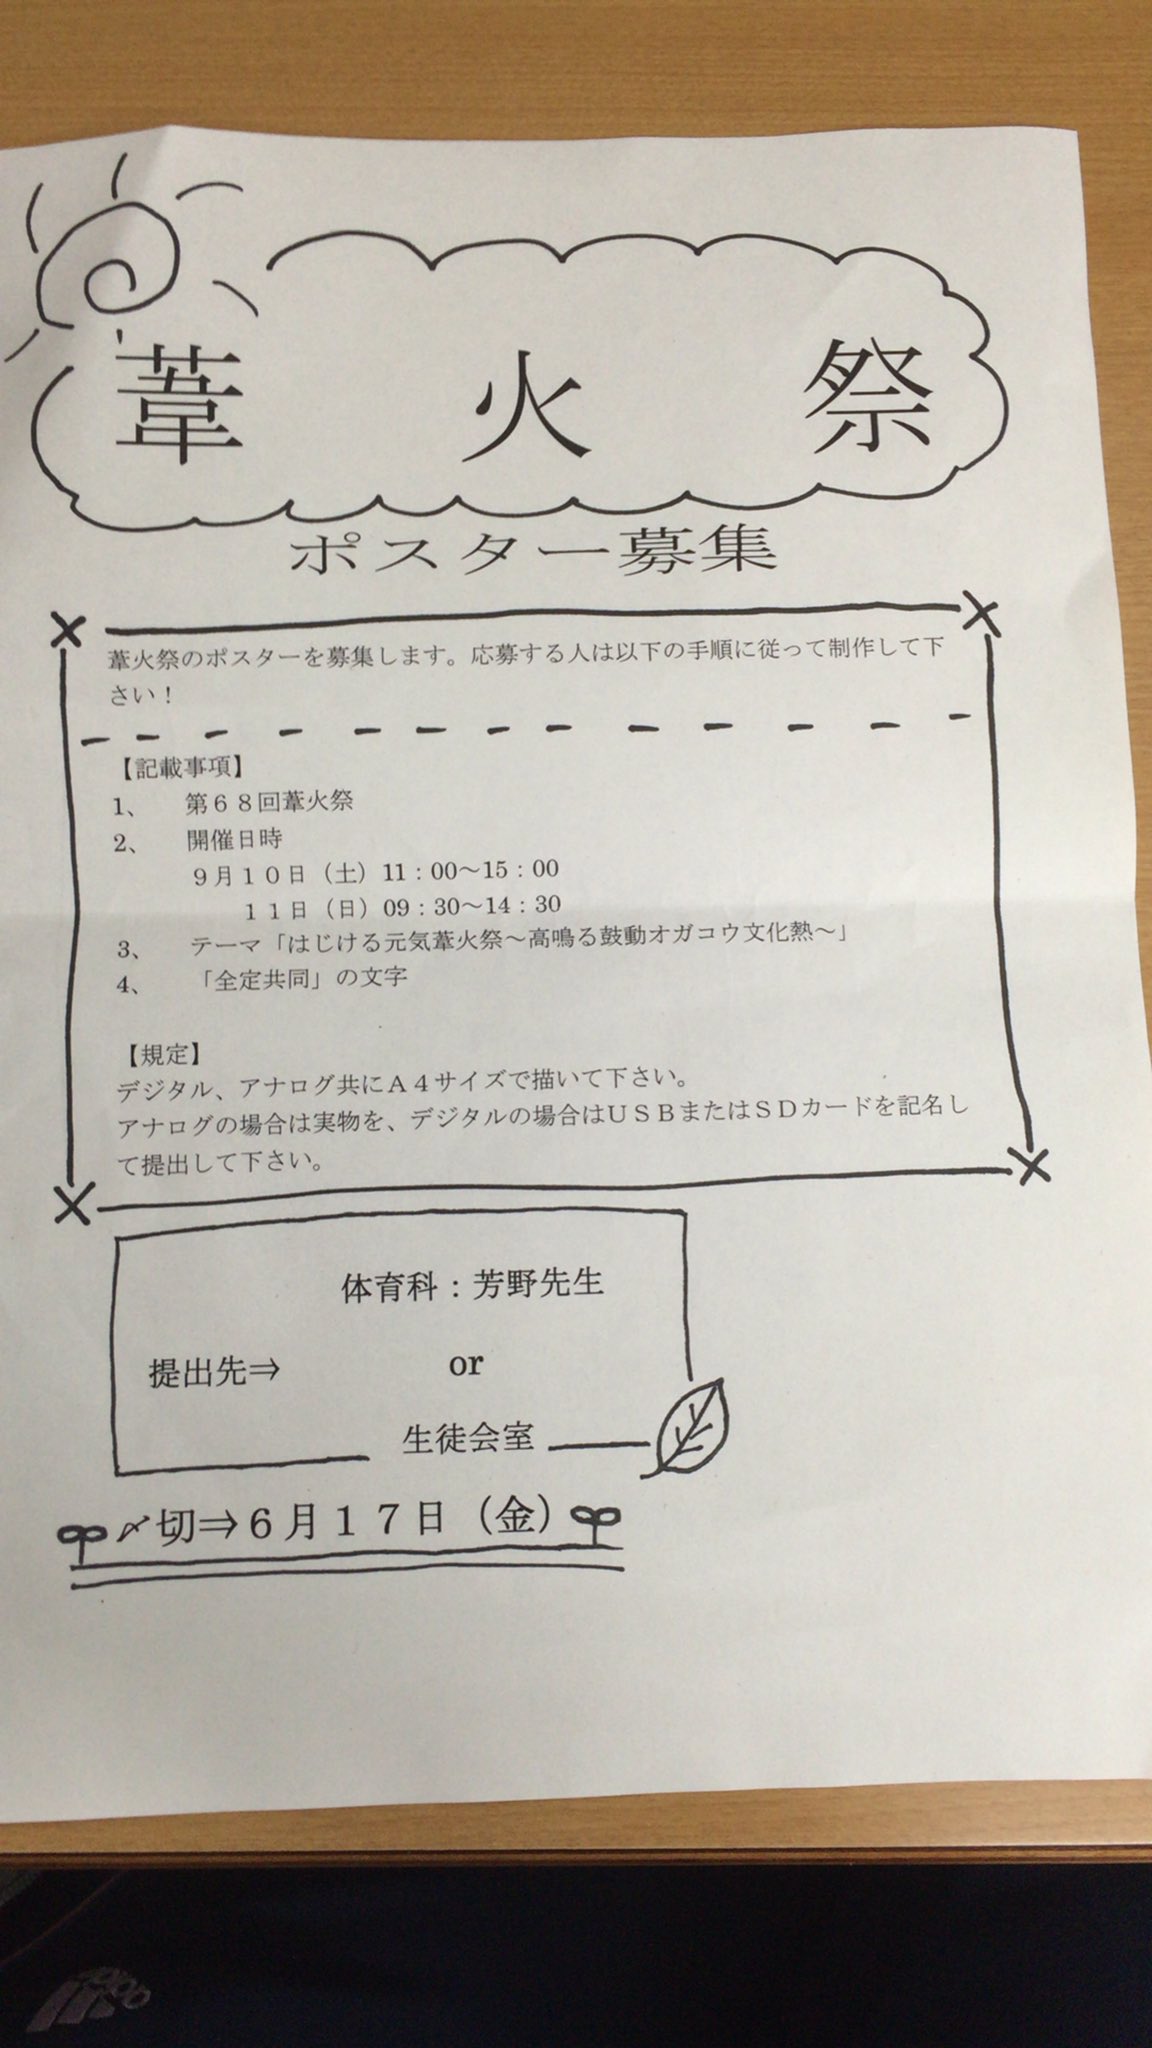 葦火祭
ポスター募集
葦火祭のポスターを募集します。応募する人は以下の手順に従って制作して下
さい！
【記載事項】
1、 第６８回葦火祭
2、 開催日時
９月１０日（土）11：00～15：00
１１日（日）09：30～14：30
3、 テーマ「はじける元気葦火祭～高鳴る鼓動オガコウ文化熱～」
4、 「全定共同」の文字
【規定】
デジタル、アナログ共にＡ４サイズで描いて下さい。
アナログの場合は実物を、デジタルの場合はＵＳＢまたはＳＤカードを記名し
て提出して下さい。
体育科：芳野先生
提出先⇒ or
生徒会室
〆切⇒６月１７日（金）